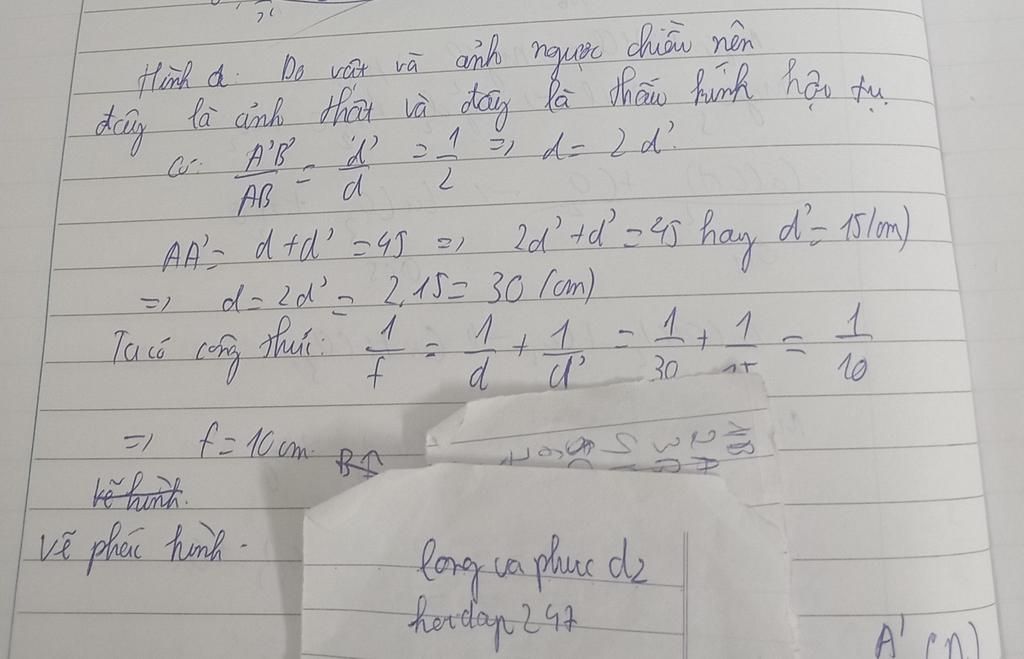 Hình d. Do vật và ảnh ngược chiều nên
đây là ảnh thật và đây là thấu kính hội tụ.
Có: A'B'/AB = d'/d = 1/2 => d = 2d'.
AA' = d + d' = 45 => 2d' + d' = 45 hay d' = 15(cm)
=> d = 2d' = 2.15 = 30 (cm)
Ta có công thức: 1/f = 1/d + 1/d' = 1/30 + 1/15 = 1/10
=> f = 10cm.
B↑
vẽ hình.
vẽ phác hình -
long ca phuc d2
hoidap247
A'